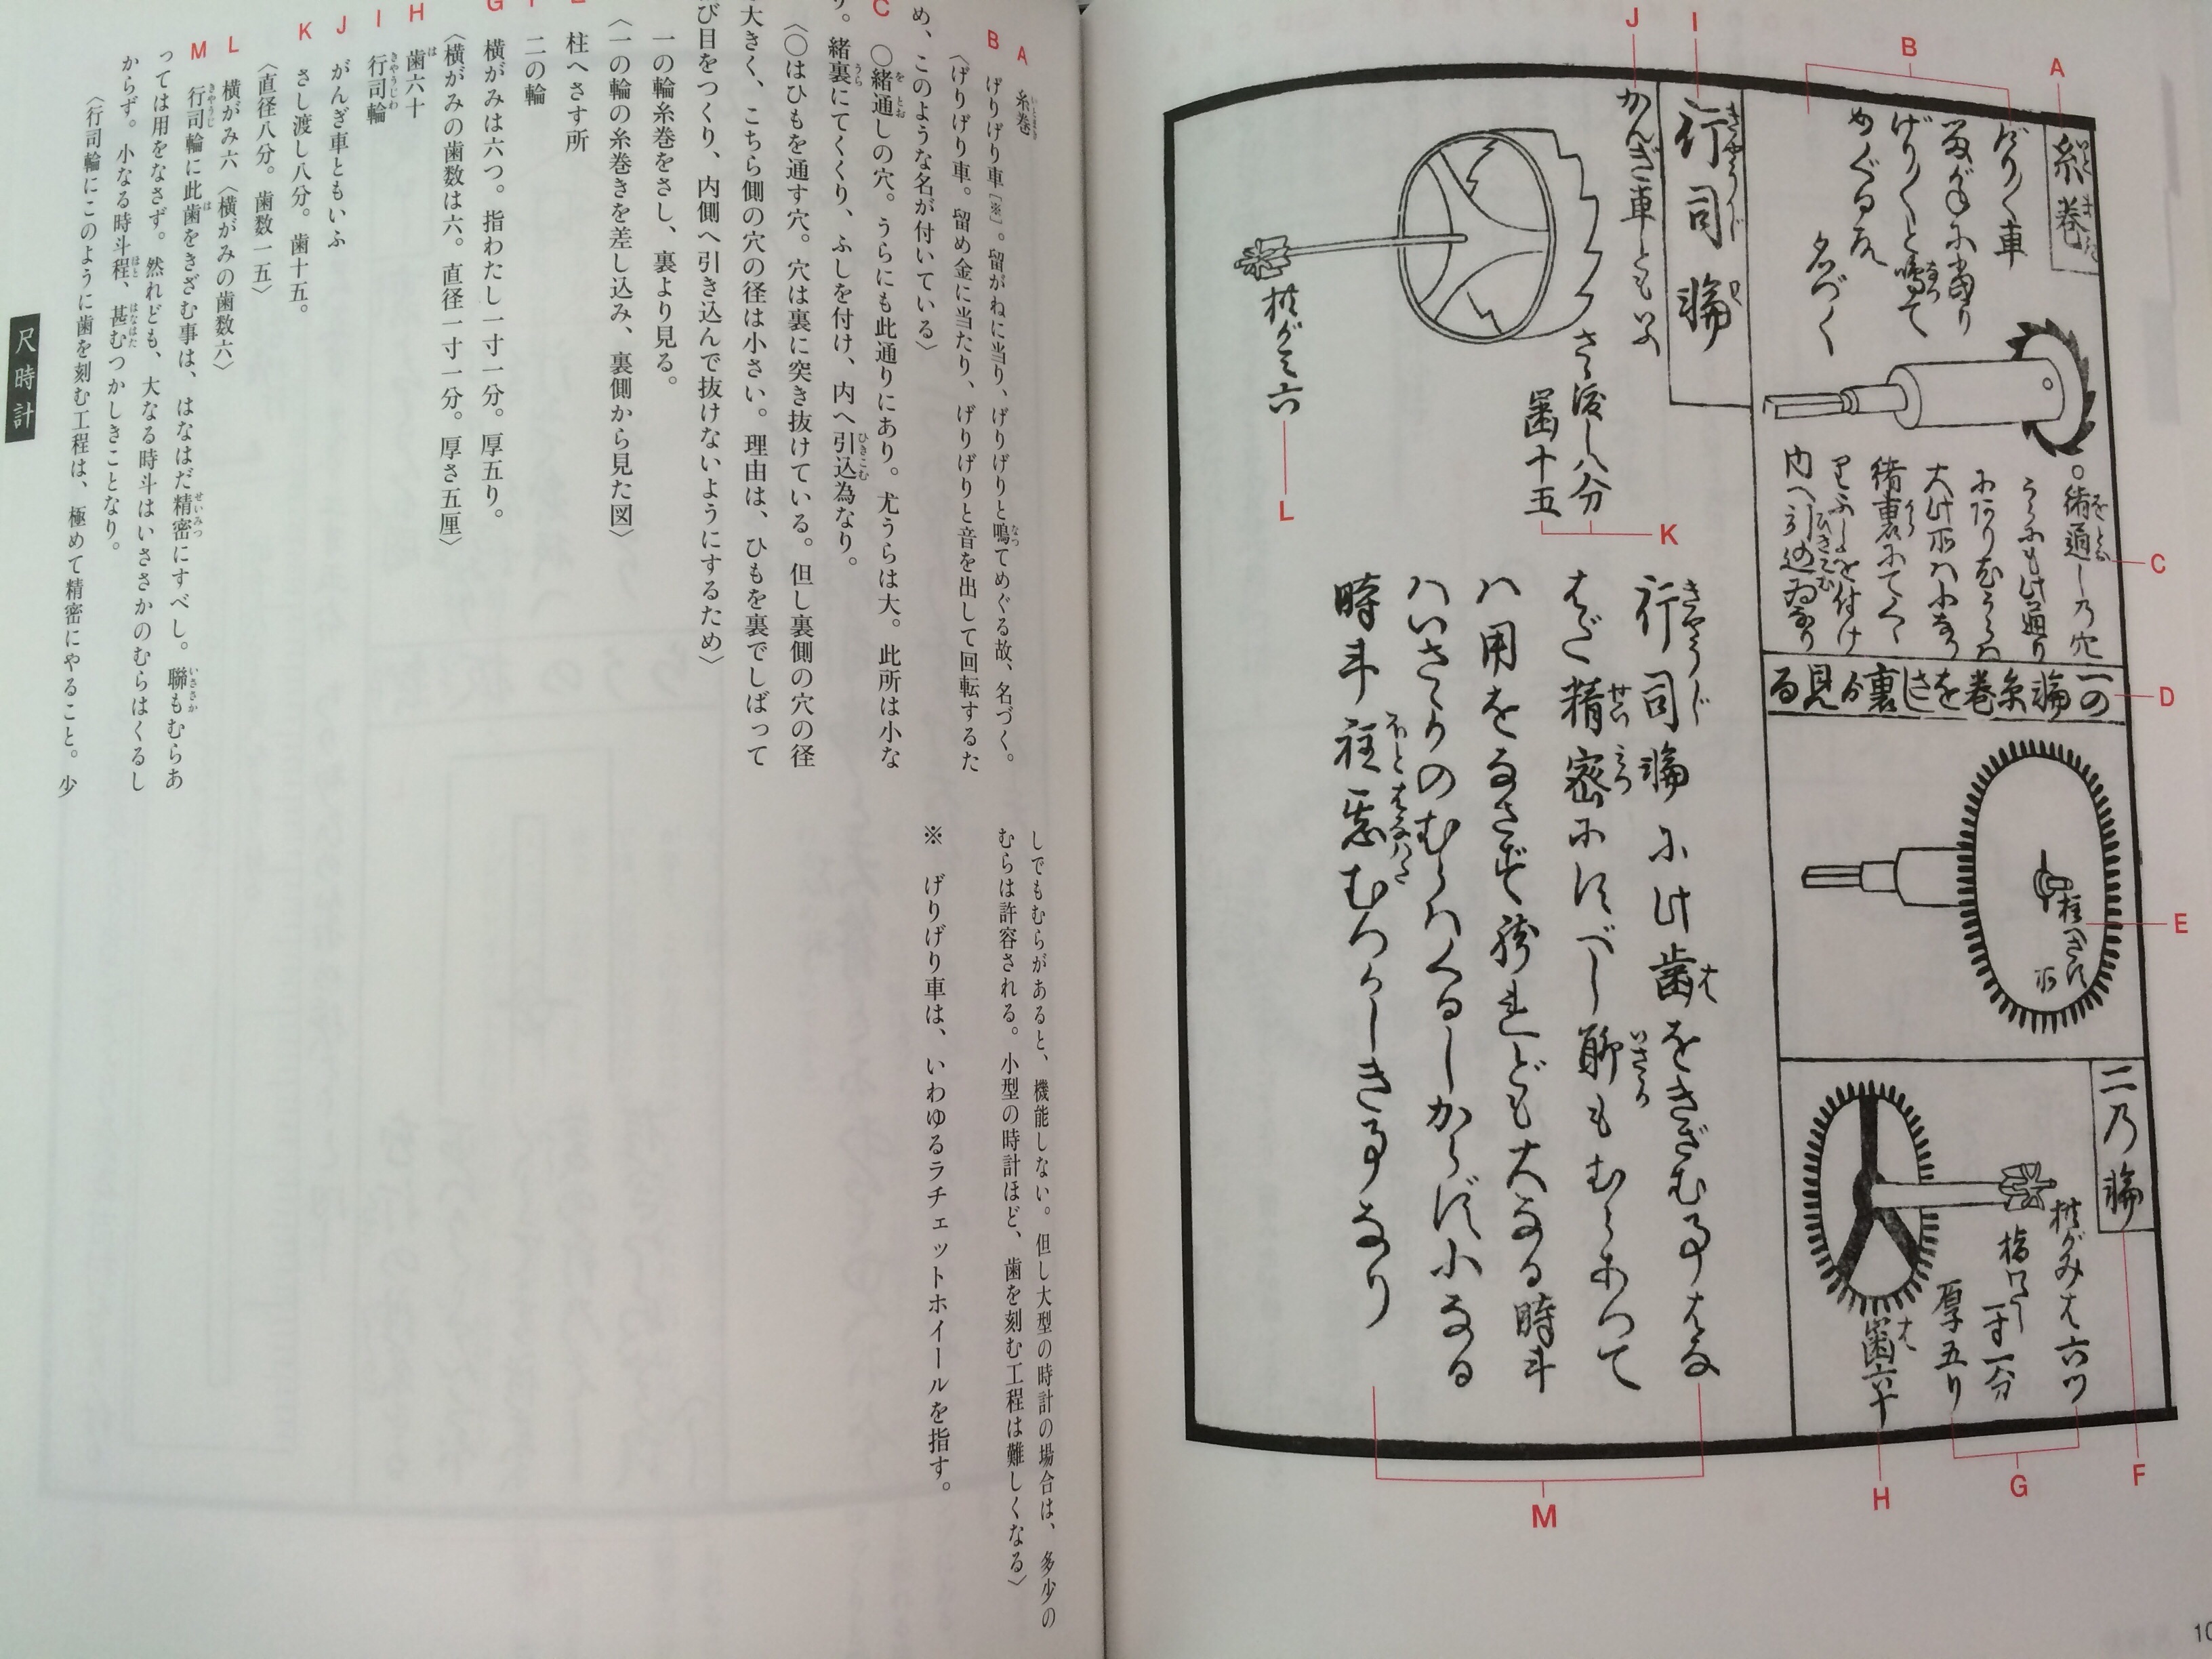 A
糸巻
B
げり〱車
留がねに当り
げり〱と鳴て
めぐる故
名づく
C
〇緒通し乃穴
うらにも此通り
にあり尤うらハ
大此所ハ小なり
緒裏にてくゝ
りふしを付け
内へ引込為なり
D
一の輪糸巻をさし裏ゟ見る
E
柱へさす
所
F
二乃輪
G
横がみは六ツ
指わたし
一寸一分
厚五り
H
歯六十
I
行司輪
J
がんぎ車ともいふ
K
さし渡し八分
歯十五
L
横がミ六
M
行司輪に此歯をきざむ事はな
はだ精密にすべし聊もむらあつて
ハ用をなさず然れども大なる時斗
ハいさゝかのむらハくるしからず小なる
時斗程甚むつかしき事なり
10
A 糸巻
B げりげり車[※]。留がねに当り、げりげりと鳴てめぐる故、名づく。
〈げりげり車。留め金に当たり、げりげりと音を出して回転するた
め、このような名が付いている〉
C 〇緒通しの穴。うらにも此通りにあり。尤うらは大。此所は小な
り。緒裏にてくくり、ふしを付け、内へ引込為なり。
〈〇はひもを通す穴。穴は裏に突き抜けている。但し裏側の穴の径
大きく、こちら側の穴の径は小さい。理由は、ひもを裏でしばって
び目をつくり、内側へ引き込んで抜けないようにするため〉
一の輪糸巻をさし、裏より見る。
〈一の輪の糸巻きを差し込み、裏側から見た図〉
柱へさす所
二の輪
G 横がみは六つ。指わたし一寸一分。厚五り。
〈横がみの歯数は六。直径一寸一分。厚さ五厘〉
H 歯六十
I 行司輪
J がんぎ車ともいふ
K さし渡し八分。歯十五。
〈直径八分。歯数一五〉
L 横がみ六〈横がみの歯数六〉
M 行司輪に此歯をきざむ事は、はなはだ精密にすべし。聯もむらあ
っては用をなさず。然れども、大なる時斗はいささかのむらはくるし
からず。小なる時斗程、甚むつかしきことなり。
〈行司輪にこのように歯を刻む工程は、極めて精密にやること。少
しでもむらがあると、機能しない。但し大型の時計の場合は、多少の
むらは許容される。小型の時計ほど、歯を刻む工程は難しくなる〉
※ げりげり車は、いわゆるラチェットホイールを指す。
尺時計